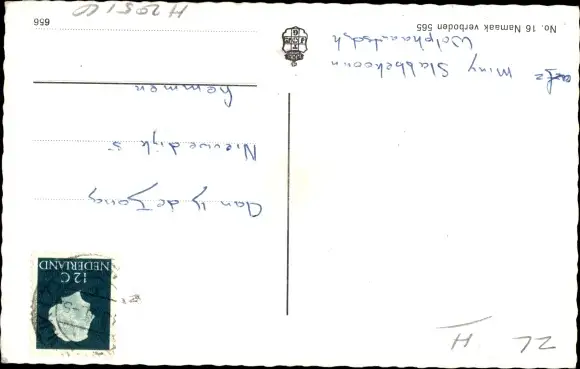 ZL H
NEDERLAND
12 C
Aan
de Jong
Nieuwedijk 5
hemmen
afz Miny Slabbekoorn
Wolphaartsdijk
No. 16 Namaak verboden 565
656
H 2051